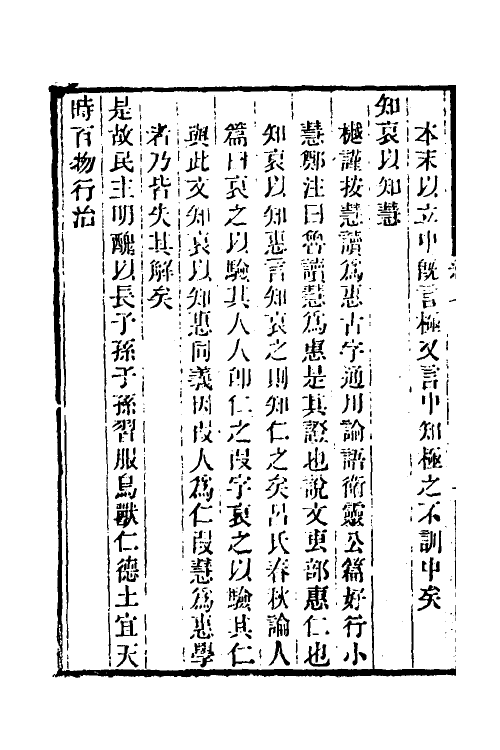 本末以立中旣言極又言中知極之不訓中矣
知哀以知慧
樾謹按慧讀爲惠古字通用論語衛靈公篇好行小
慧鄭注曰魯讀慧爲惠是其證也說文叀部惠仁也
知哀以知惠言知哀之則知仁之矣呂氏春秋論人
篇曰哀之以驗其人人卽仁之叚字哀之以驗其仁
與此文知哀以知惠同義因叚人爲仁叚慧爲惠學
者乃皆失其解矣
是故民主明醜以長子孫子孫習服鳥獸仁德土宜天
時百物行治